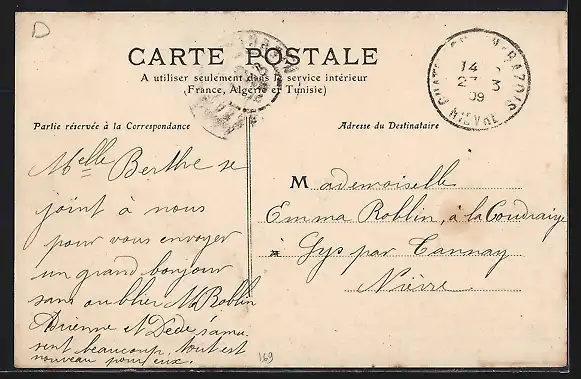 D
CARTE POSTALE
A utiliser seulement dans le service intérieur
(France, Algérie et Tunisie)
14
27 3
09
NIEVRE
Partie réservée à la Correspondance
Adresse du Destinataire
Melle Berthe se
joint à nous
pour vous envoyer
un grand bonjour
sans oublier M. Roblin
Adrienne et Dédé s'amu
sent beaucoup, tout est
nouveau pour eux.
Mademoiselle
Emma Roblin, à la Coudraye
à Lys par Tannay
Nièvre
169